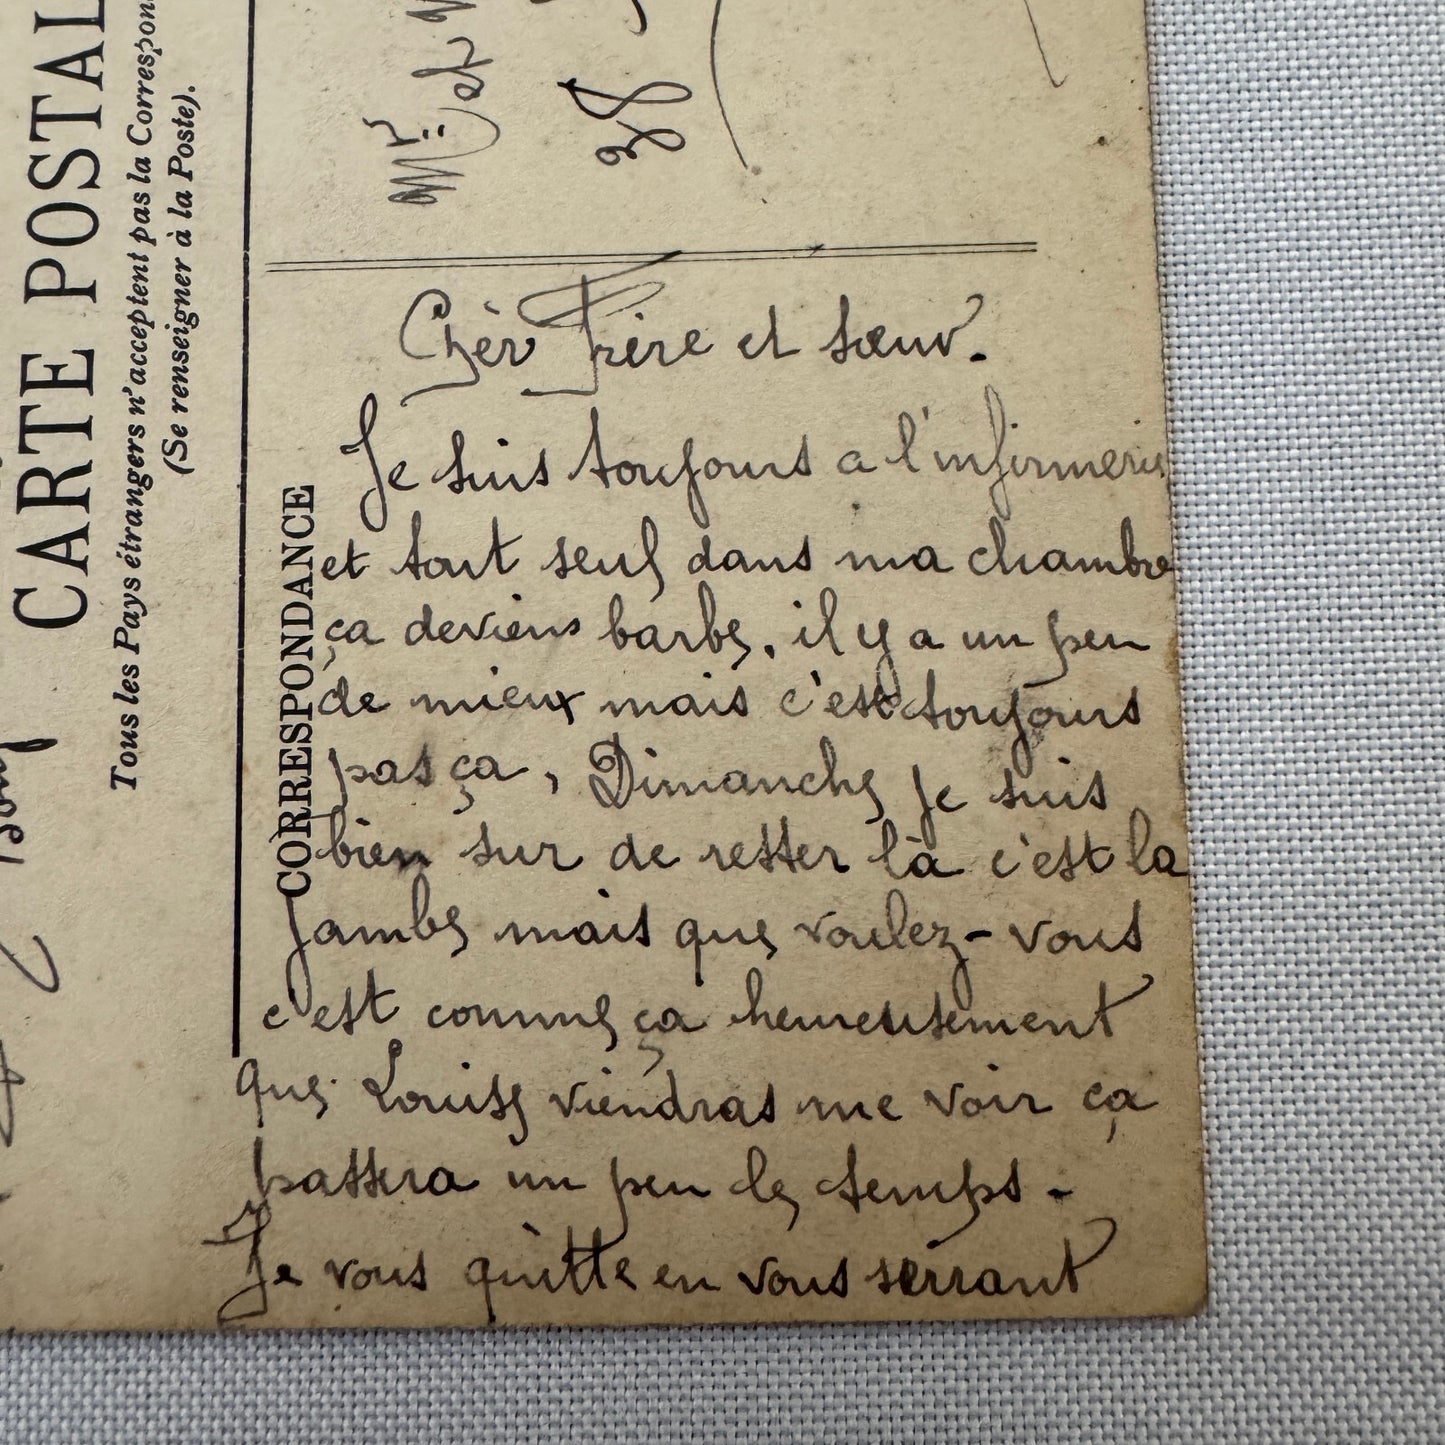 CARTE POSTAL
Tous les Pays étrangers n'acceptent pas la Correspon
(Se renseigner à la Poste).
CORRESPONDANCE
Mr. et
38
Chèr Frère et sœur.
Je suis toujours a l'infirmerie
et tout seul dans ma chambre
ça deviens barbe, il y a un peu
de mieux mais c'est toujours
pas ça, Dimanche je suis
bien sur de rester là c'est la
jambe mais que voulez-vous
c'est comme ça heureusement
que Louise viendras me voir ça
passera un peu le temps -
Je vous quitte en vous serrant